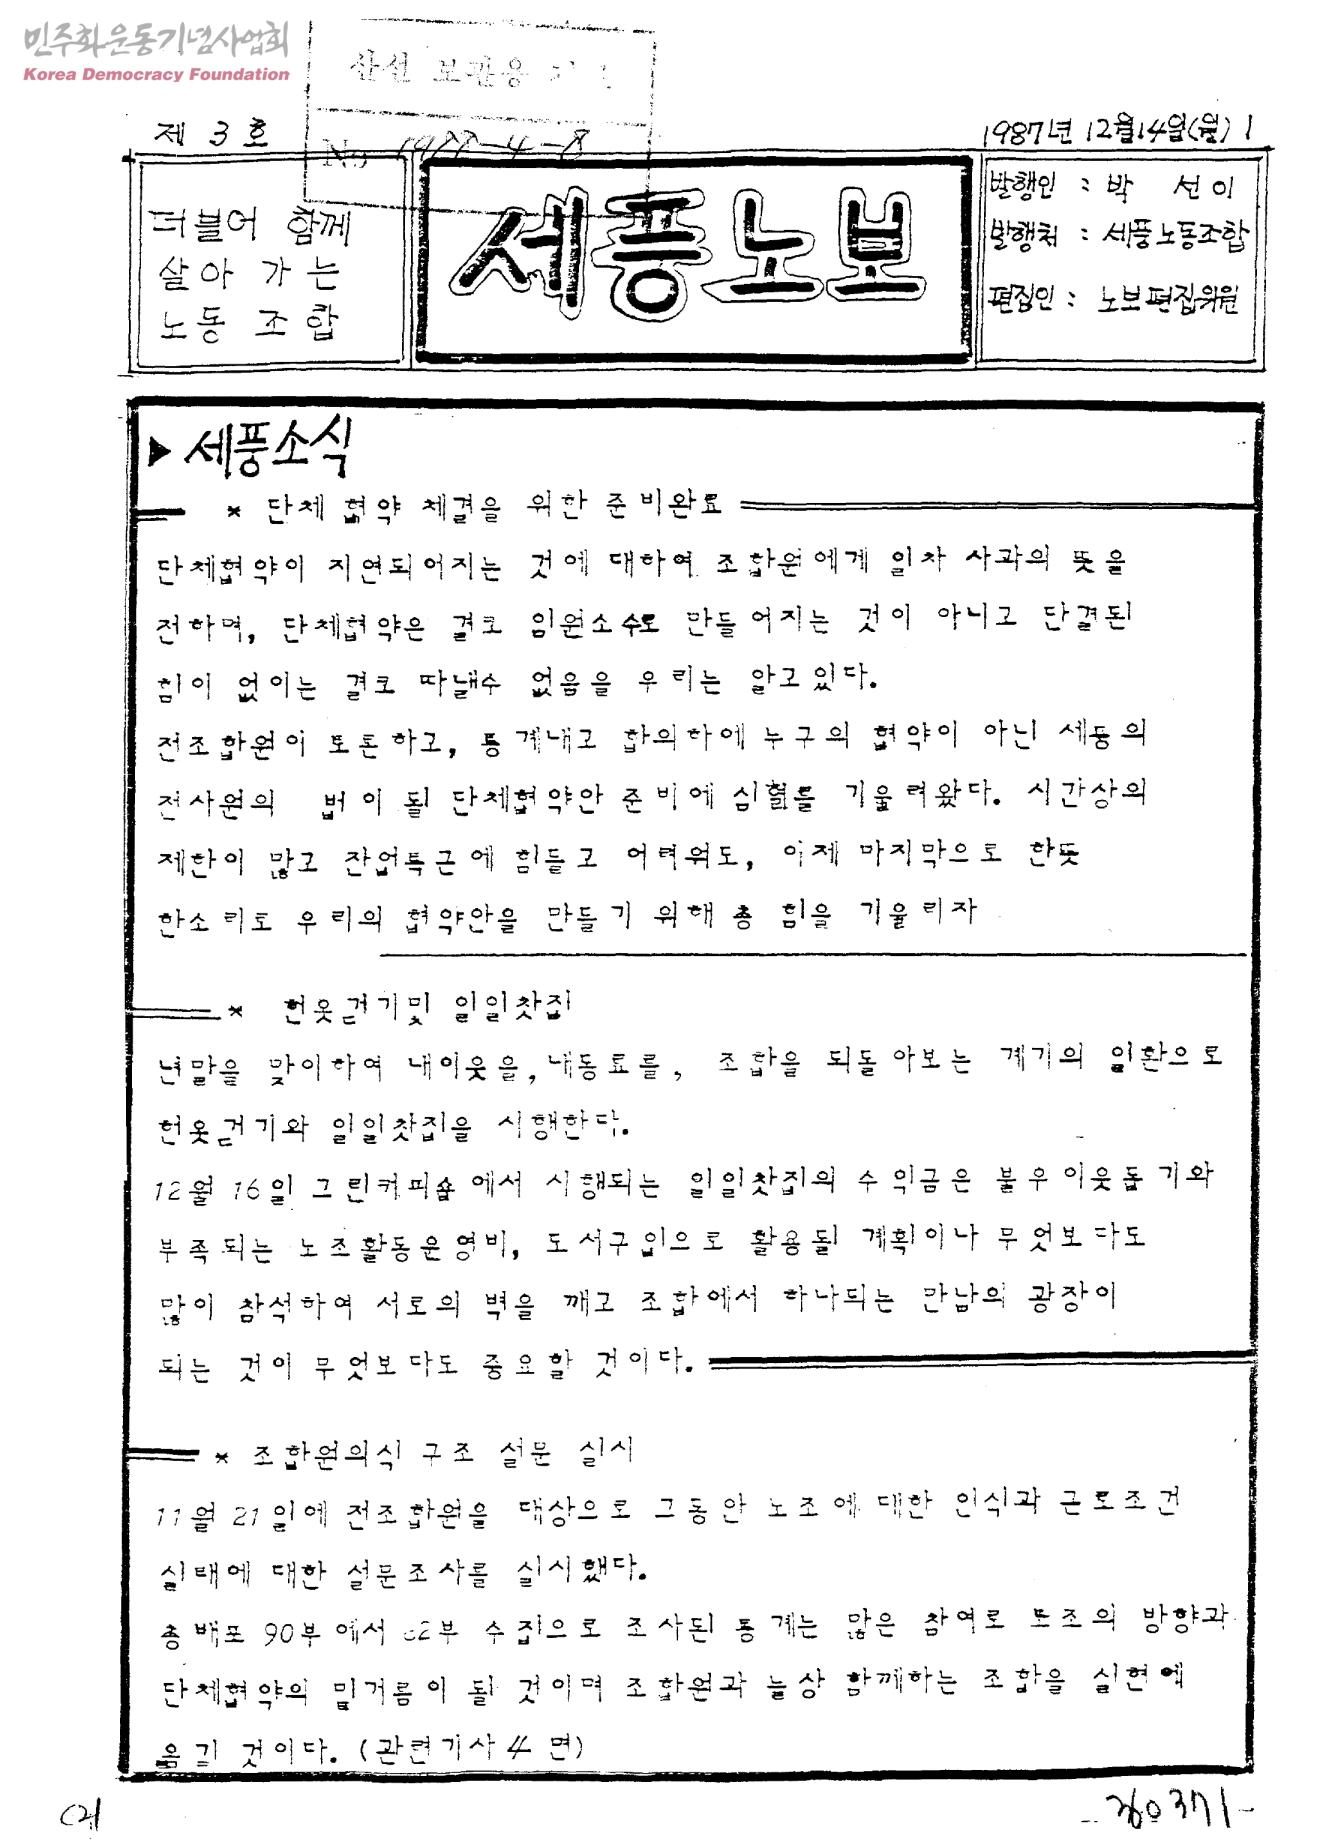 민주화운동기념사업회
Korea Democracy Foundation
산선 보관용
No
제 3 호
1987년 12월14일(월) 1
더불어 함께
살아 가는
노동 조합
세풍노보
발행인 : 박 선이
발행처 : 세풍노동조합
편집인 : 노보편집위원
▶ 세풍소식
* 단체 협약 체결을 위한 준비완료
단체협약이 지연되어지는 것에 대하여 조합원에게 일차 사과의 뜻을
전하며, 단체협약은 결코 임원소수로 만들어지는 것이 아니고 단결된
힘이 없이는 결코 따낼수 없음을 우리는 알고있다.
전조합원이 토론하고, 통계내고 합의하에 누구의 협약이 아닌 세풍의
전사원의 법이 될 단체협약안 준비에 심혈를 기울려왔다. 시간상의
제한이 많고 잔업특근에 힘들고 어려워도, 이제 마지막으로 한뜻
한소리로 우리의 협약안을 만들기 위해 총 힘을 기울리자
* 헌옷걷기및 일일찻집
년말을 맞이하여 내이웃을, 내동료를, 조합을 되돌아보는 계기의 일환으로
헌옷걷기와 일일찻집을 시행한다.
12월 16일 그린커피숍에서 시행되는 일일찻집의 수익금은 불우이웃돕기와
부족되는 노조활동운영비, 도서구입으로 활용될 계획이나 무엇보다도
많이 참석하여 서로의 벽을 깨고 조합에서 하나되는 만남의 광장이
되는 것이 무엇보다도 중요할 것이다.
* 조합원의식 구조 설문 실시
11월 21일에 전조합원을 대상으로 그동안 노조에 대한 인식과 근로조건
실태에 대한 설문조사를 실시했다.
총배포 90부에서 부 수집으로 조사된 통계는 많은 참여로 노조의 방향과
단체협약의 밑거름이 될 것이며 조합원과 늘상 함께하는 조합을 실현에
옮길 것이다. (관련기사 4 면)